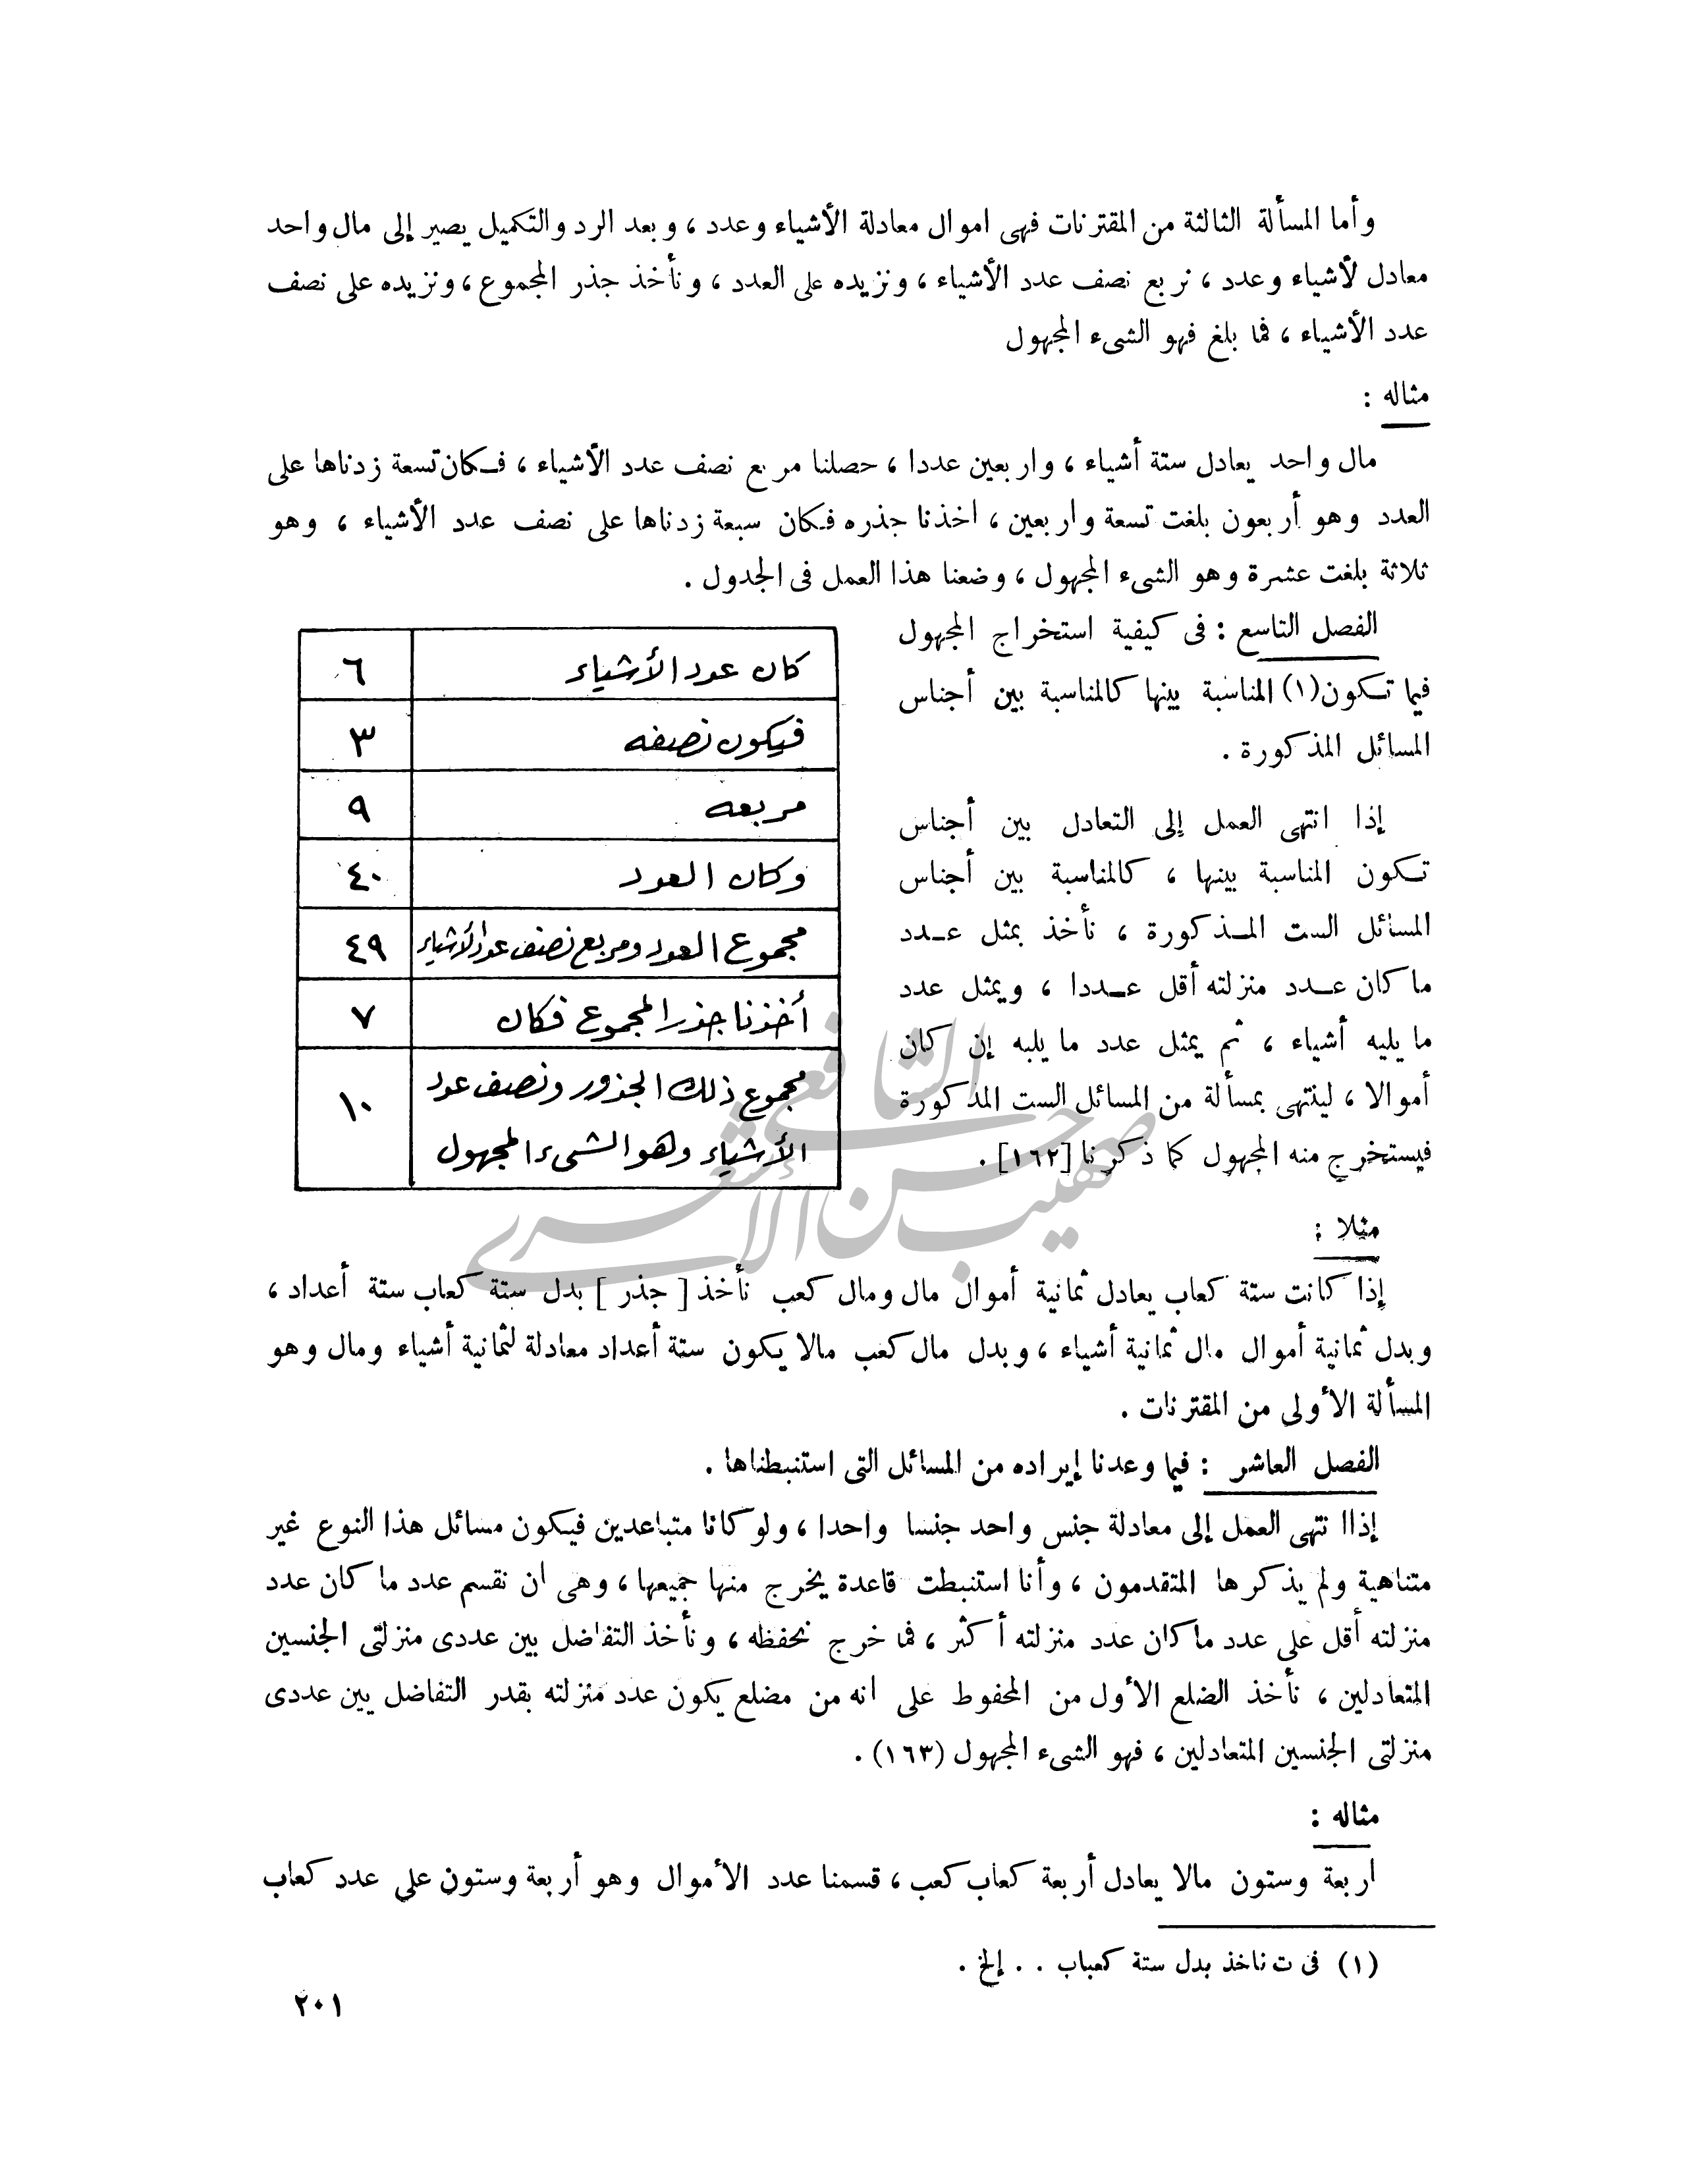 وأما المسألة الثالثة من المقترنات فهى اموال معادلة الأشياء وعدد ، وبعد الرد والتكميل يصير إلى مال واحد
معادل لأشياء وعدد ، نربع نصف عدد الأشياء ، ونزيده على العدد ، ونأخذ جذر المجموع ، ونزيده على نصف
عدد الأشياء ، فما بلغ فهو الشىء المجهول
مثاله :
مال واحد يعادل ستة أشياء ، واربعين عددا ، حصلنا مربع نصف عدد الأشياء ، فكان تسعة زدناها على
العدد وهو أربعون بلغت تسعة واربعين ، اخذنا جذره فكان سبعة زدناها على نصف عدد الأشياء ، وهو
ثلاثة بلغت عشرة وهو الشىء المجهول ، وضعنا هذا العمل فى الجدول .
الفصل التاسع : فى كيفية استخراج المجهول
فيما تكون(١) المناسبة بينها كالمناسبة بين أجناس
المسائل المذكورة .
إذا انتهى العمل إلى التعادل بين أجناس
تكون المناسبة بينها ، كالمناسبة بين أجناس
المسائل الست المذكورة ، نأخذ بمثل عدد
ما كان عدد منزلته أقل عددا ، وبمثل عدد
ما يليه أشياء ، ثم بمثل عدد ما يليه إن كان
أموالا ، لينتهى بمسألة من المسائل الست المذكورة
فيستخرج منه المجهول كما ذكرنا [١٦٢] .
كان عدد الأشياء ٦
فيكون نصفه ٣
مربعه ٩
وكان العدد ٤٠
مجموع العدد ومربع نصف عدد الأشياء ٤٩
أخذنا جذر المجموع فكان ٧
مجموع ذلك الجذور ونصف عدد ١٠
الأشياء وهو الشىء المجهول
صهيب حسن الشافعي الأشعري
مثلا :
إذا كانت ستة كعاب يعادل ثمانية أموال مال ومال كعب نأخذ [ جذر ] بدل ستة كعاب ستة أعداد ،
وبدل ثمانية أموال مال ثمانية أشياء ، وبدل مال كعب مالا يكون ستة أعداد معادلة لثمانية أشياء ومال وهو
المسألة الأولى من المقترنات .
الفصل العاشر : فيما وعدنا إيراده من المسائل التى استنبطناها .
إذاا نتهى العمل إلى معادلة جنس واحد جنسا واحدا ، ولو كانا متباعدين فيكون مسائل هذا النوع غير
متناهية ولم يذكرها المتقدمون ، وأنا استنبطت قاعدة يخرج منها جميعها ، وهى ان نقسم عدد ما كان عدد
منزلته أقل على عدد ما كان عدد منزلته أكثر ، فما خرج نحفظه ، ونأخذ التفاضل بين عددى منزلتى الجنسين
المتعادلين ، نأخذ الضلع الأول من المحفوط على انه من مضلع يكون عدد منزلته بقدر التفاضل بين عددى
منزلتى الجنسين المتعادلين ، فهو الشىء المجهول (١٦٣) .
مثاله :
اربعة وستون مالا يعادل أربعة كعاب كعب ، قسمنا عدد الأموال وهو أربعة وستون على عدد كعاب
(١) فى ت ناخذ بدل ستة كعباب . . إلخ .
٢٠١